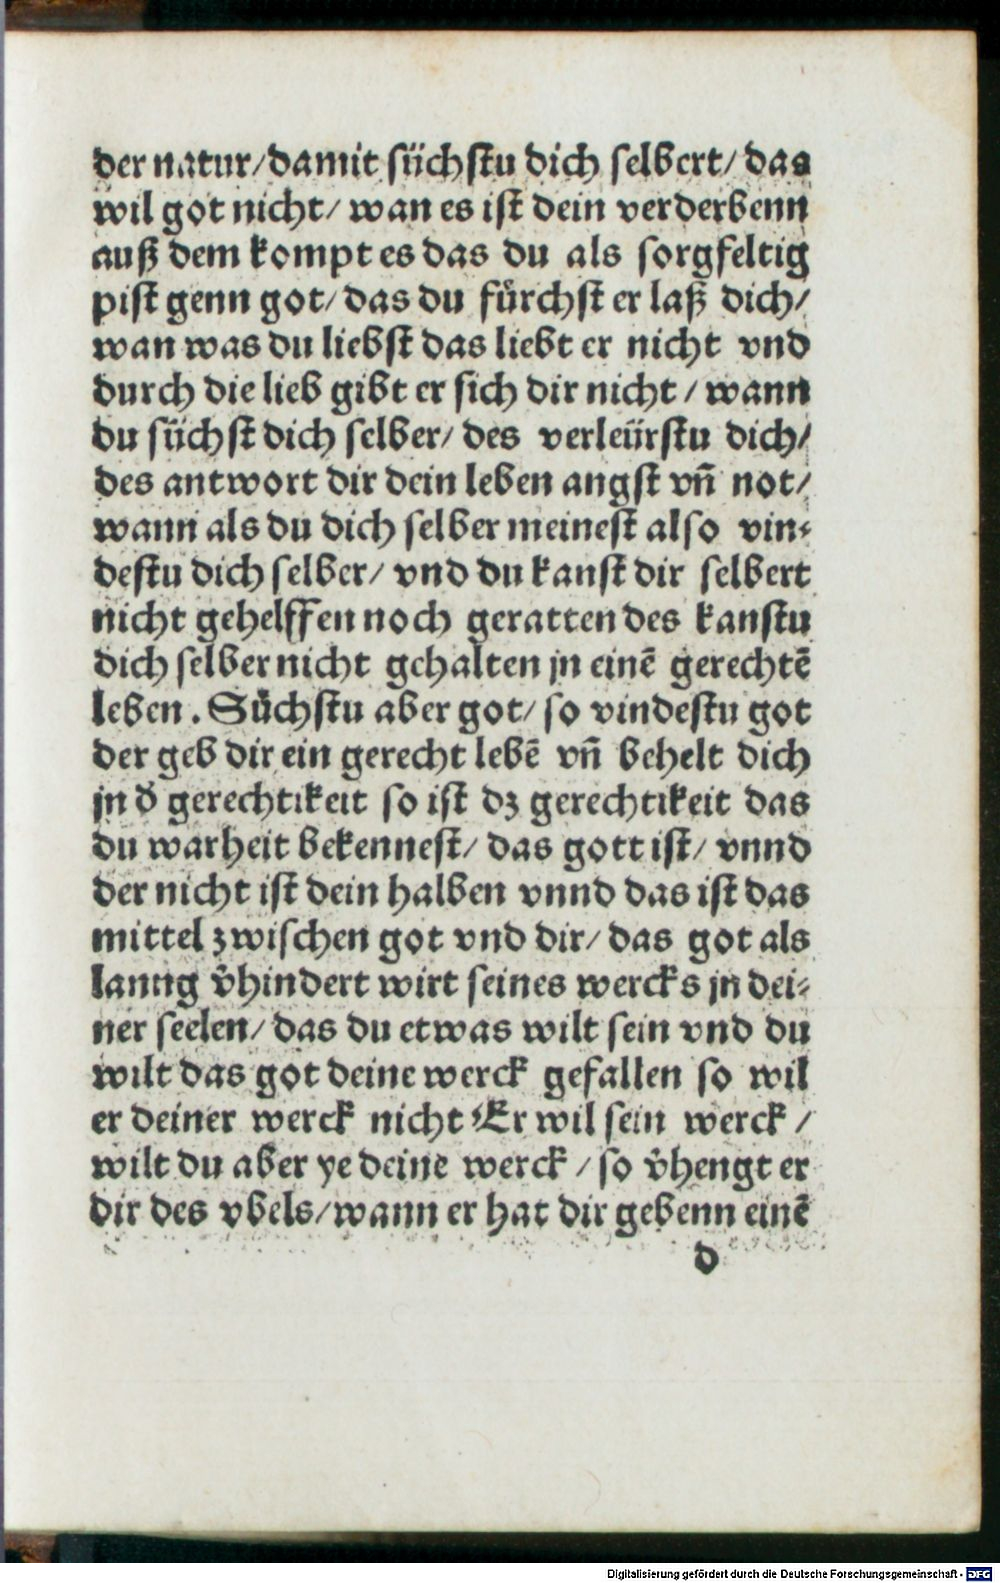 der natur/damit süchstu dich selbert/das
wil got nicht/ wan es ist dein verderbenn
auß dem kompt es das du als sorgfeltig
pist genn got/ das du fürchst er laß dich/
wan was du liebst das liebt er nicht vnd
durch die lieb gibt er sich dir nicht / wann
du süchst dich selber/ des verleürstu dich/
des antwort dir dein leben angst vn̄ not/
wann als du dich selber meinest also vin⸗
destu dich selber/ vnd du kanst dir selbert
nicht gehelffen noch geratten des kanstu
dich selber nicht gehalten jn einē gerechtē
leben. Sůchstu aber got/ so vindestu got
der geb dir ein gerecht lebē vn̄ behelt dich
jn d̓ gerechtikeit so ist dz gerechtikeit das
du warheit bekennest/ das gott ist/ vnnd
der nicht ist dein halben vnnd das ist das
mittel zwischen got vnd dir/ das got als
lanng v̓hindert wirt seines wercks jn dei⸗
ner seelen/ das du etwas wilt sein vnd du
wilt das got deine werck gefallen so wil
er deiner werck nicht Er wil sein werck /
wilt du aber ye deine werck / so v̓hengt er
dir des vbels/wann er hat dir gebenn einē
d
Digitalisierung gefördert durch die Deutsche Forschungsgemeinschaft - DFG